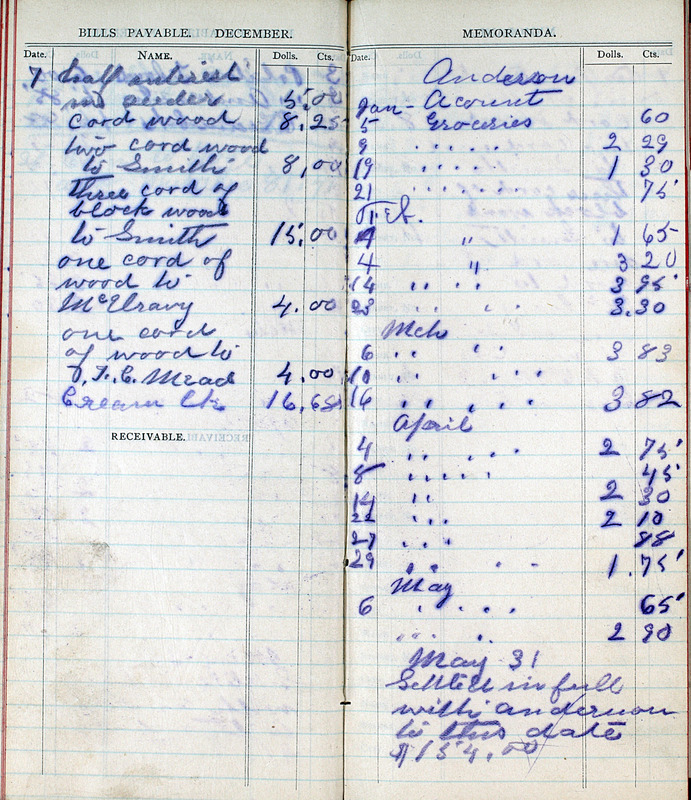 BILLS PAYABLE. DECEMBER.
Date. NAME. Dolls. Cts.
7 half interest
in binder 5.00
cord wood 8.25
two cord wood
to Smith 8,00
three cord of
block wood
to Smith 15.00
one cord of
wood to
McElravy 4.00
one cord
of wood to
J.F.C. Mead 4.00
Cream Ck 16.65
RECEIVABLE.
MEMORANDA.
Date. Dolls. Cts.
Anderson
Jan- Acount
5 Groceries 60
9 " " 2 29
19 " " 1 30
21 " " 75
Feb.
4 " 1 65
4 " 3 20
14 " " 3 95
23 " " 3.30
Mch
6 " " 3 83
10 " "
16 " " 3 82
April
4 " " 2 75
8 " " 45
14 " 2 30
22 " 2 10
27 " 88
29 " " 1.75
May
6 " " 65
" " 2 90
May 31
Settled in full
with anderson
to this date
$154.00